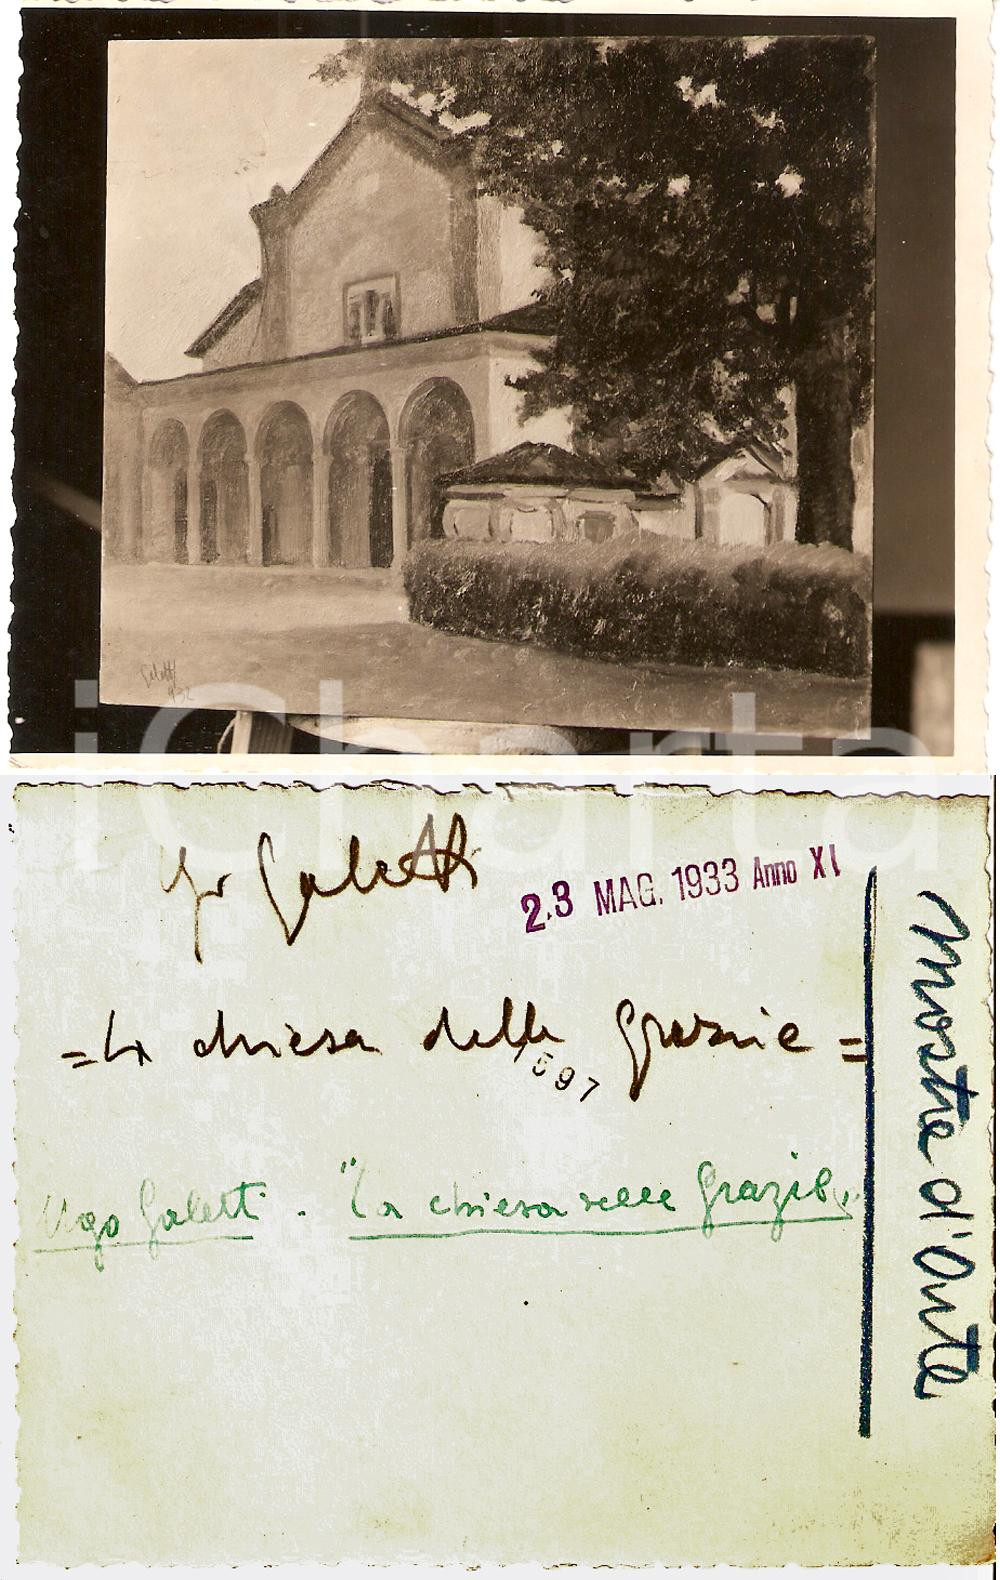 Galetti
932
iCharta
Ugo Galetti
23 MAG. 1933 Anno XI
=La chiesa delle Grazie=
597
Ugo Galetti. "La chiesa delle Grazie"
Mostra d'Arte